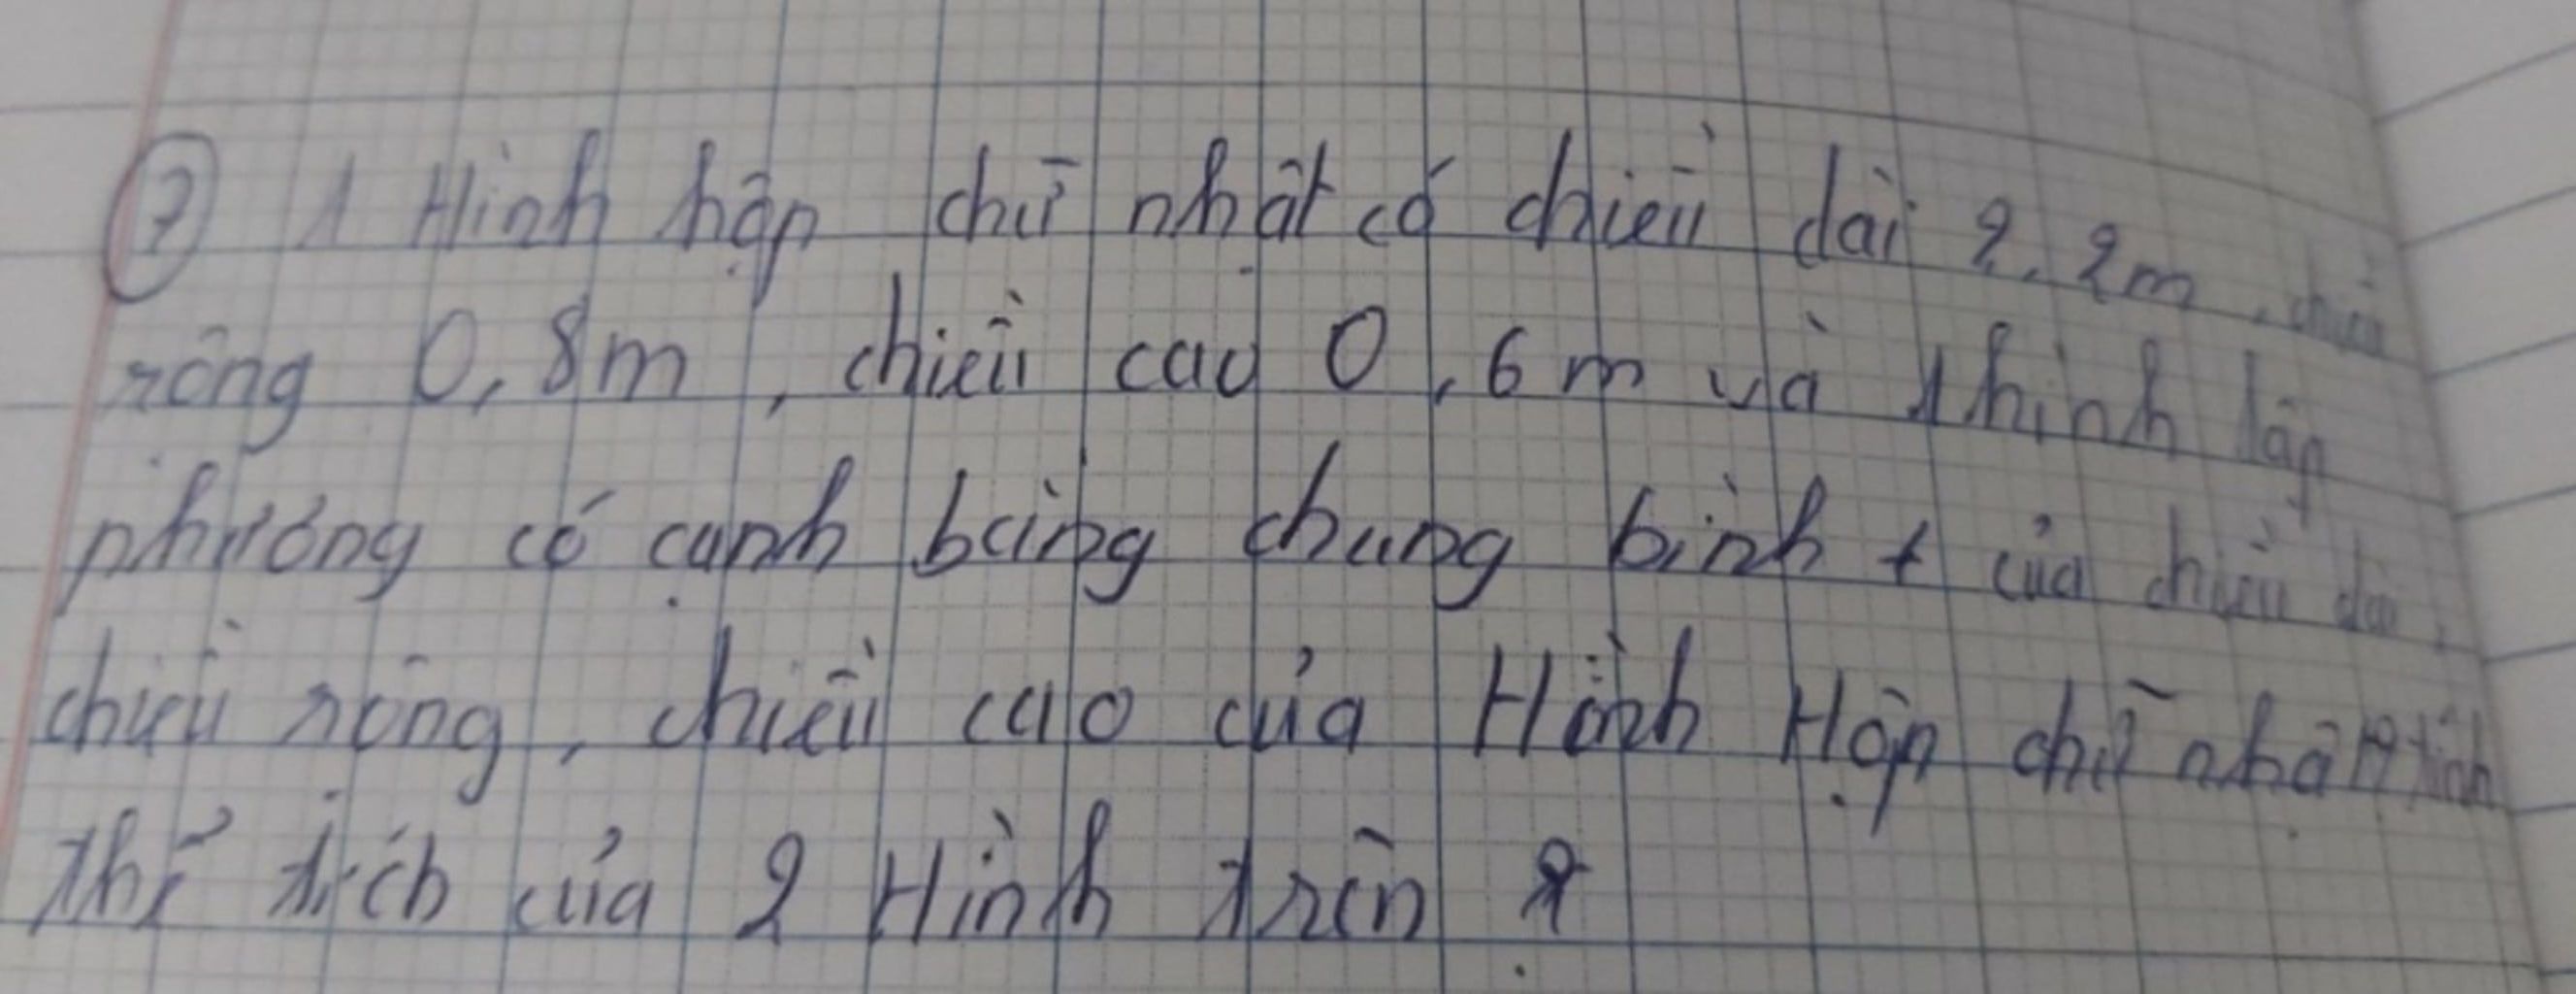 ⑦ 1 Hình hộp chữ nhật có chiều dài 2,2m, chiều
rộng 0,8m, chiều cao 0,6m và 1 hình lập
phương có cạnh bằng chung bình + của chiều dài,
chiều rộng, chiều cao của Hình Hộp chữ nhật tính
thể tích của 2 Hình trên ?